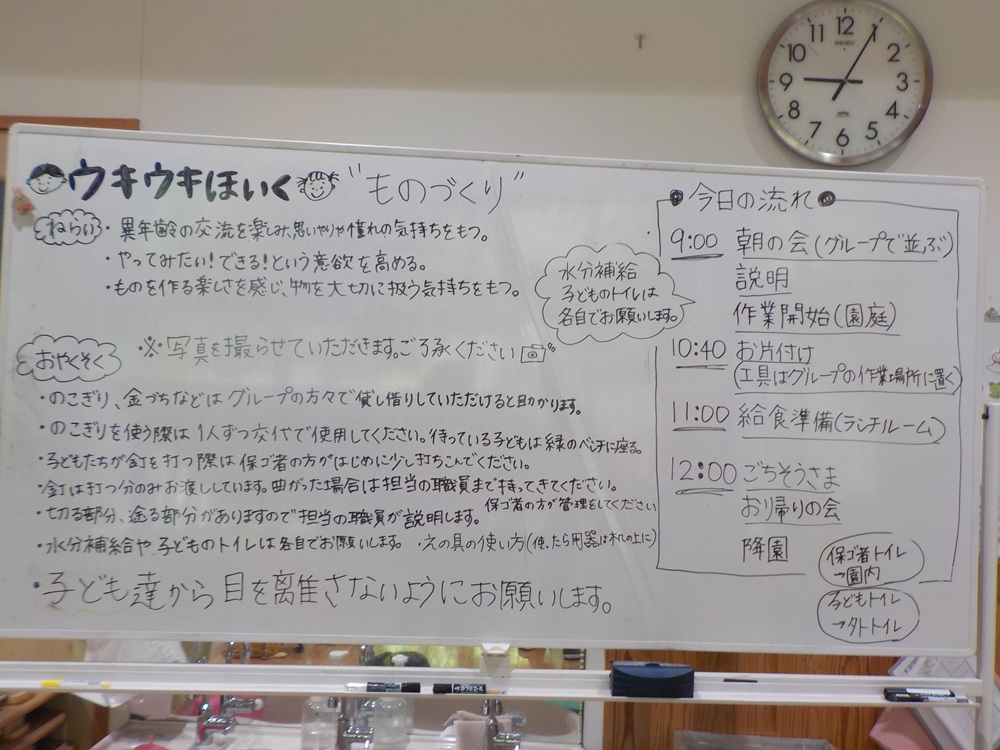 ウキウキほいく "ものづくり"
ねらい
・異年齢の交流を楽しみ、思いやりや憧れの気持ちをもつ。
・やってみたい！できる！という意欲を高める。
・ものを作る楽しさを感じ、物を大切に扱う気持ちをもつ。
水分補給
子どものトイレは
各自でお願いします。
※写真を撮らせていただきます。ご了承ください
おやくそく
・のこぎり、金づちなどはグループの方々で貸し借りしていただけると助かります。
・のこぎりを使う際は1人ずつ交代で使用してください。待っている子どもは緑のベンチに座る。
・子どもたちが釘を打つ際は保ゴ者の方がはじめに少し打ちこんでください。
・釘は打つ分のみお渡ししています。曲がった場合は担当の職員まで持ってきてください。
保ゴ者の方が管理をしてください
・切る部分、塗る部分がありますので担当の職員が説明します。
・水分補給や子どものトイレは各自でお願いします。
・えの具の使い方(使ったら用器は木の上に)
・子ども達から目を離さないようにお願いします。
今日の流れ
9:00 朝の会(グループで並ぶ)
説明
作業開始(園庭)
10:40 お片付け
(工具はグループの作業場所に置く)
11:00 給食準備(ランチルーム)
12:00 ごちそうさま
お帰りの会
降園
保ゴ者トイレ
→園内
子どもトイレ
→外トイレ
12
1
2
3
4
5
6
7
8
9
10
11
SEIKO